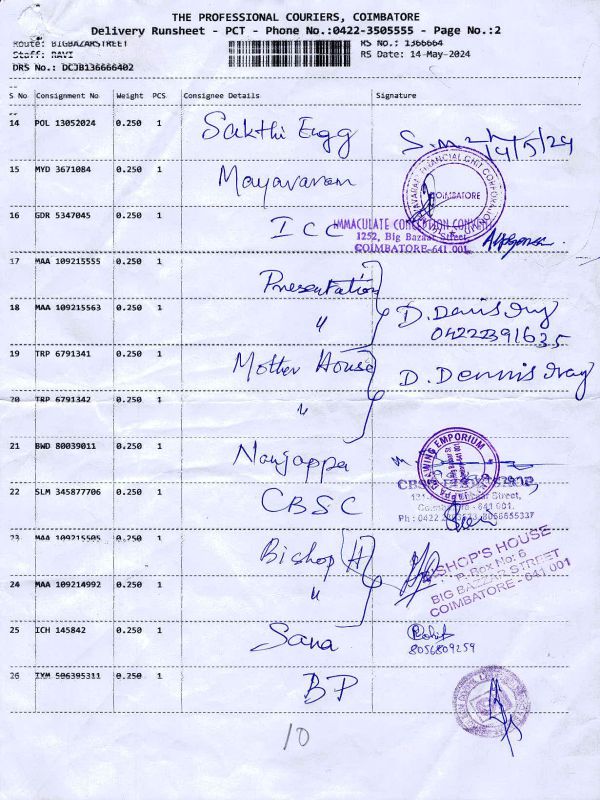 THE PROFESSIONAL COURIERS, COIMBATORE
Delivery Runsheet - PCT - Phone No.:0422-3505555 - Page No.:2
Route: BIGBAZARSTREET RS No.: 1366664
Staff: RAVI RS Date: 14-May-2024
DRS No.: DCJB136666402
S No Consignment No Weight PCS Consignee Details Signature
14 POL 13052024 0.250 1 Sakthi Engg
14/5/24
15 MYD 3671084 0.250 1 Mayavaram
COIMBATORE
16 GDR 5347045 0.250 1 ICC
IMMACULATE CONCEPTION CONVENT
1252, Big Bazaar Street,
COIMBATORE-641 001.
17 MAA 109215555 0.250 1 Presentation
18 MAA 109215563 0.250 1 "
D. Denis Iruy
04222391635
19 TRP 6791341 0.250 1 Mother House
D. Dennis Iray
20 TRP 6791342 0.250 1 "
21 BWD 80039011 0.250 1 Nanjappa
EMPORIUM
22 SLM 345877706 0.250 1 CBSC
Street,
Coimbatore - 641 001.
23 MAA 109215505 0.250 1 Bishop H
BISHOP'S HOUSE
P. Box No: 6
BIG BAZZAR STREET
COIMBATORE - 641 001
24 MAA 109214992 0.250 1 "
25 ICH 145842 0.250 1 Sana
8056809259
26 IXM 506395311 0.250 1 BP
10